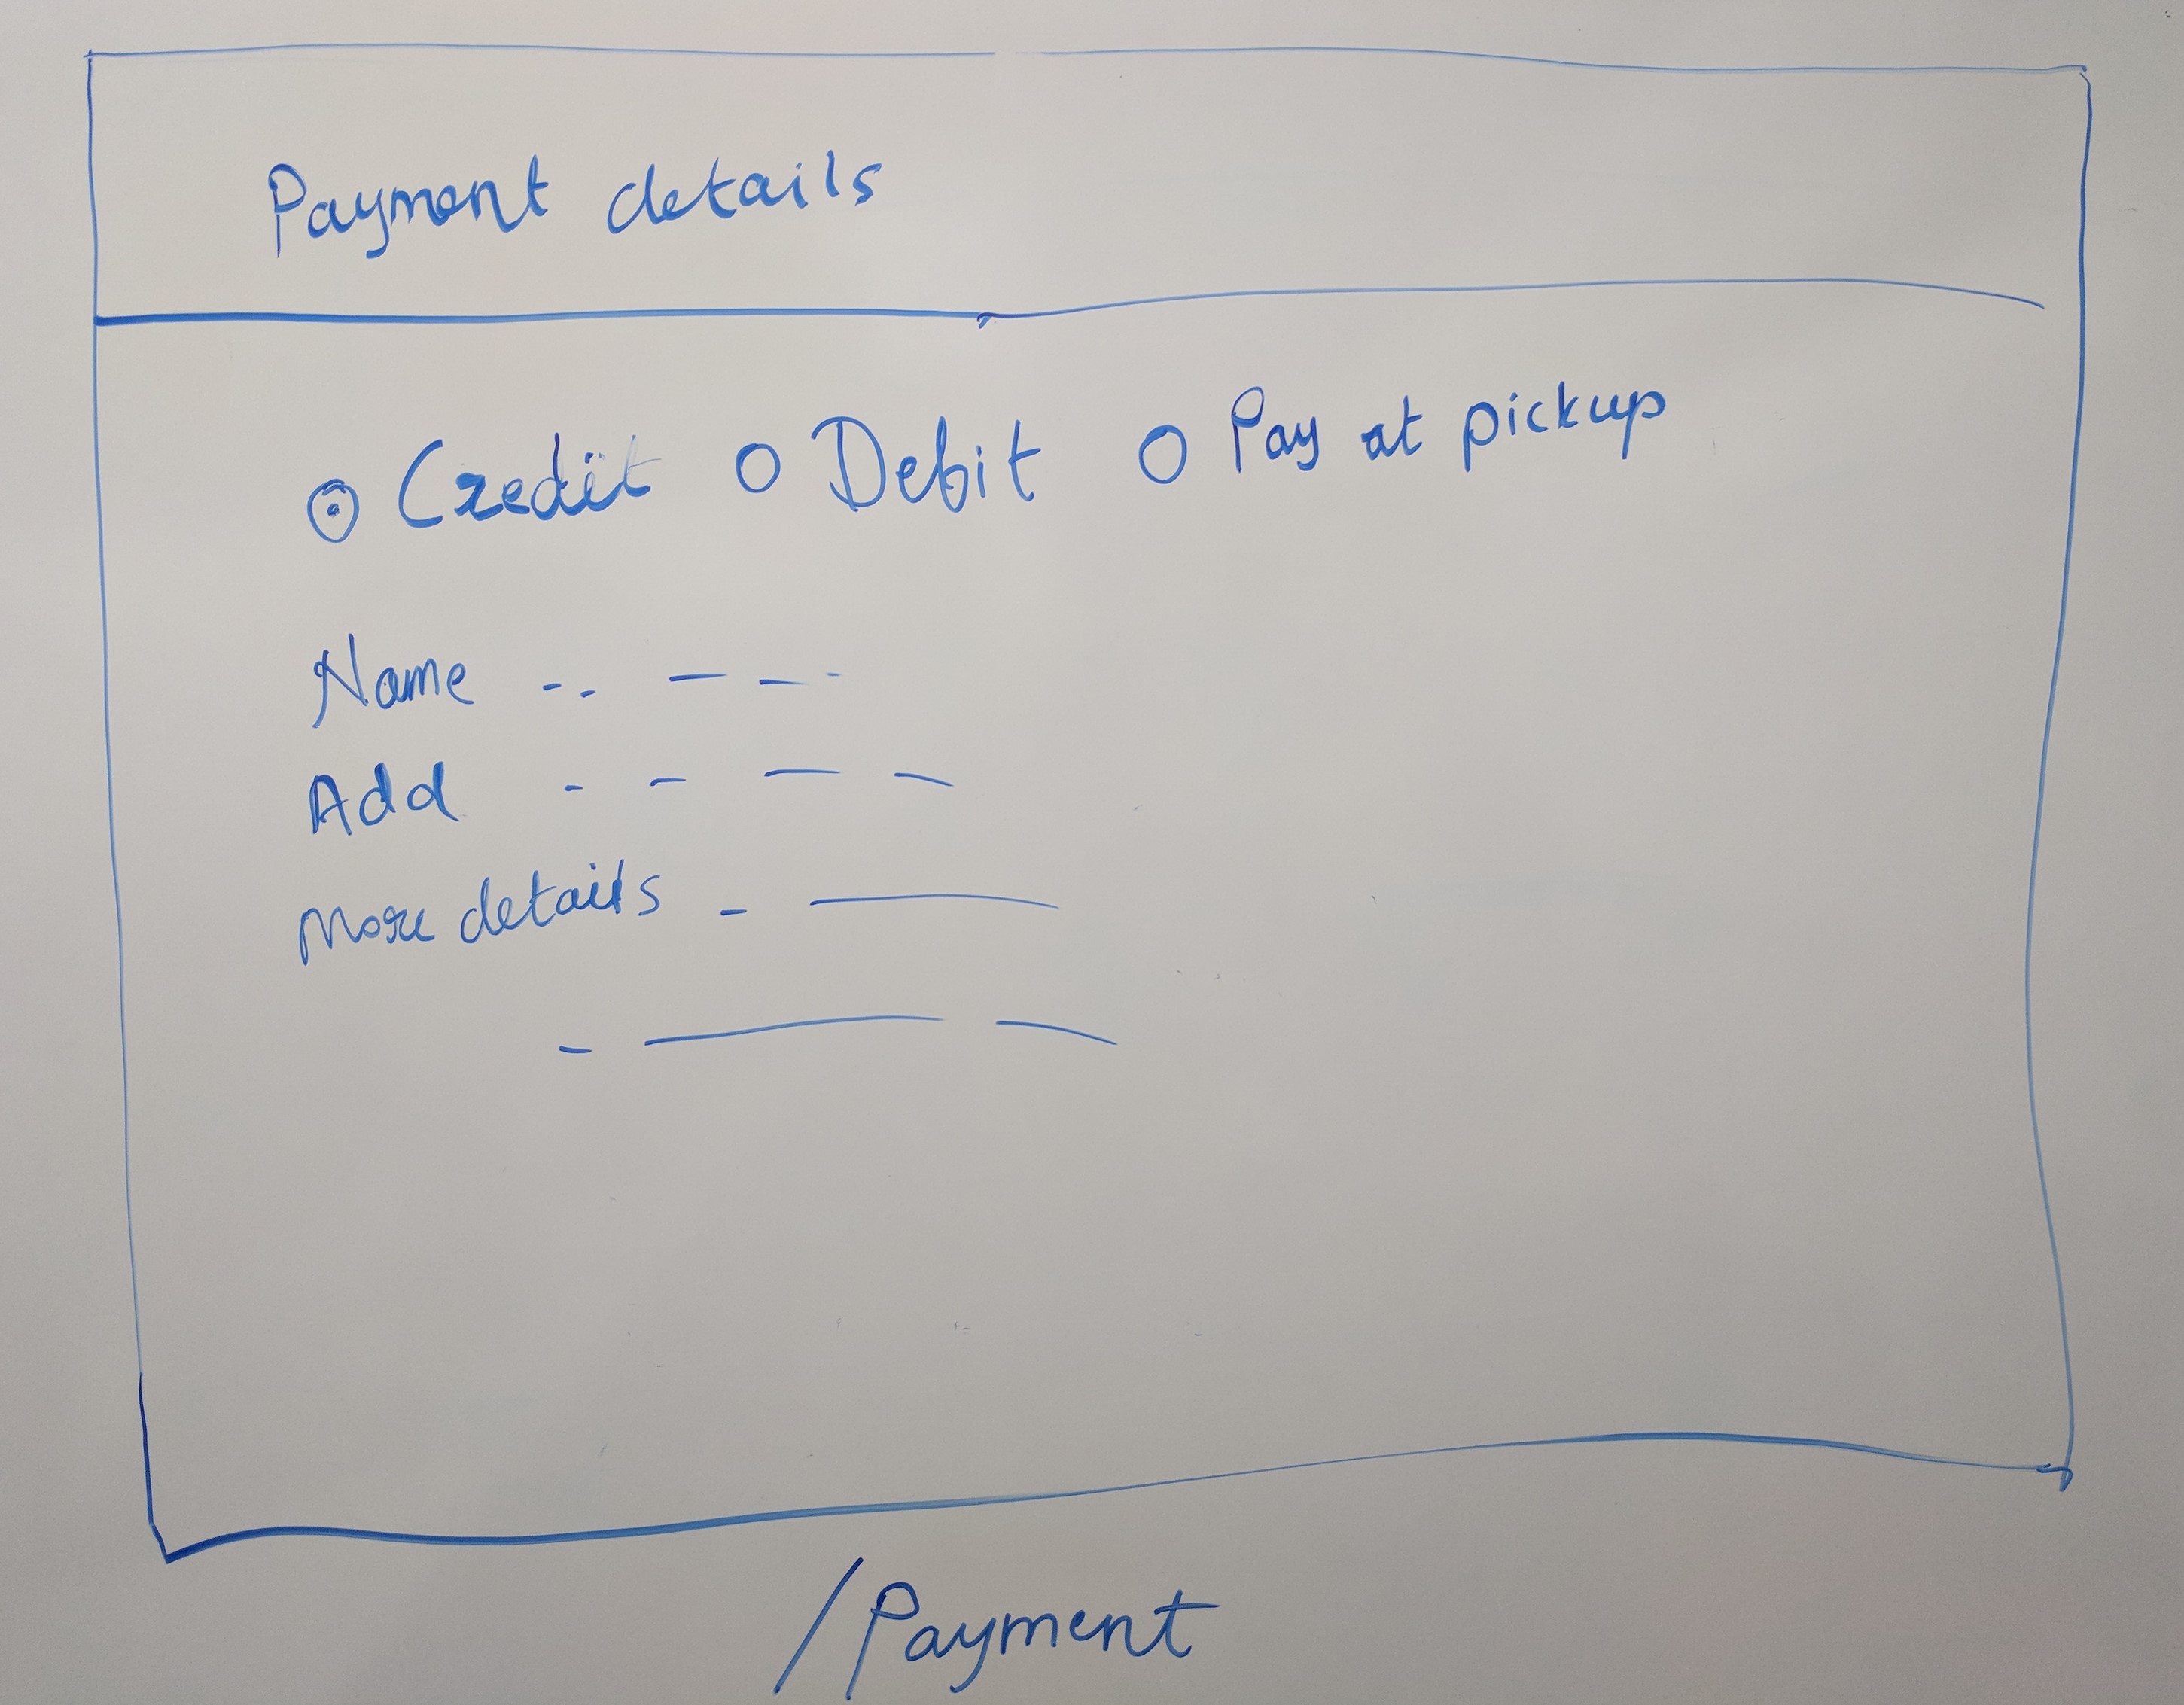 Payment details
Credit Debit Pay at pickup
Name
Add
More details
/Payment